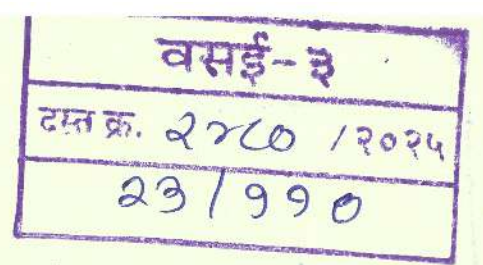 वसई-३
दस्त क्र. २४८० /२०२५
२३/११०